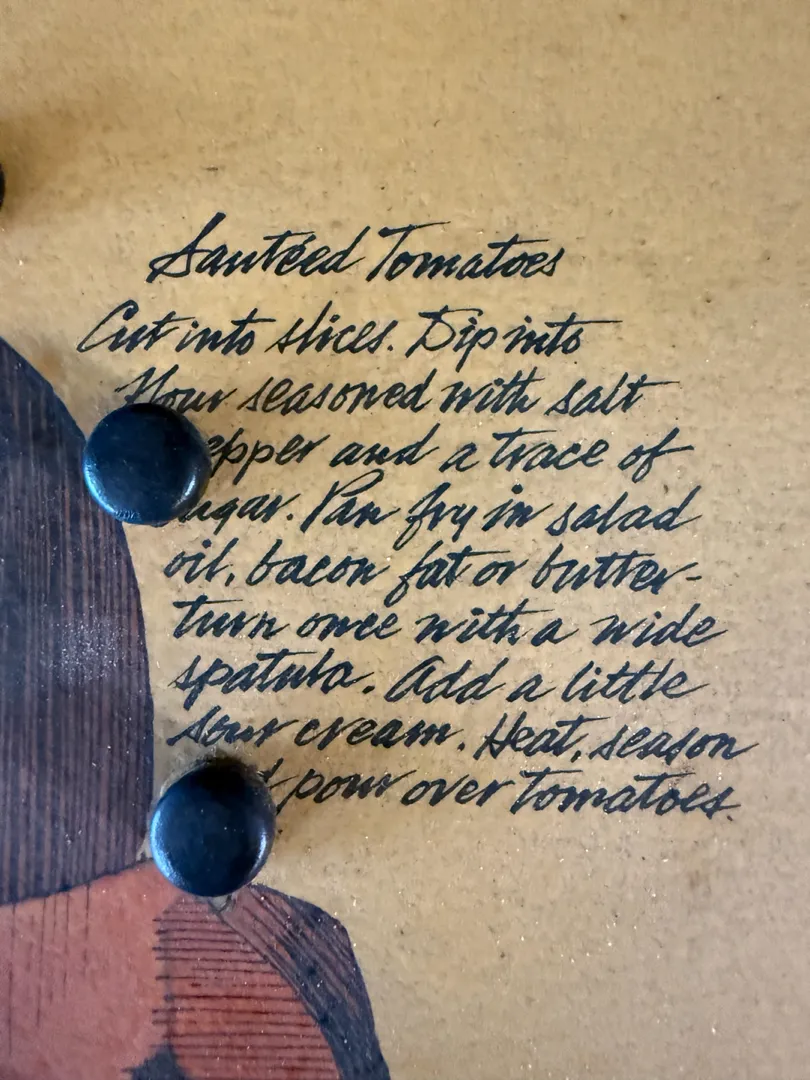 Sautéed Tomatoes
Cut into slices. Dip into
flour seasoned with salt
pepper and a trace of
sugar. Pan fry in salad
oil, bacon fat or butter-
turn once with a wide
spatula. Add a little
sour cream. Heat, season
pour over tomatoes.